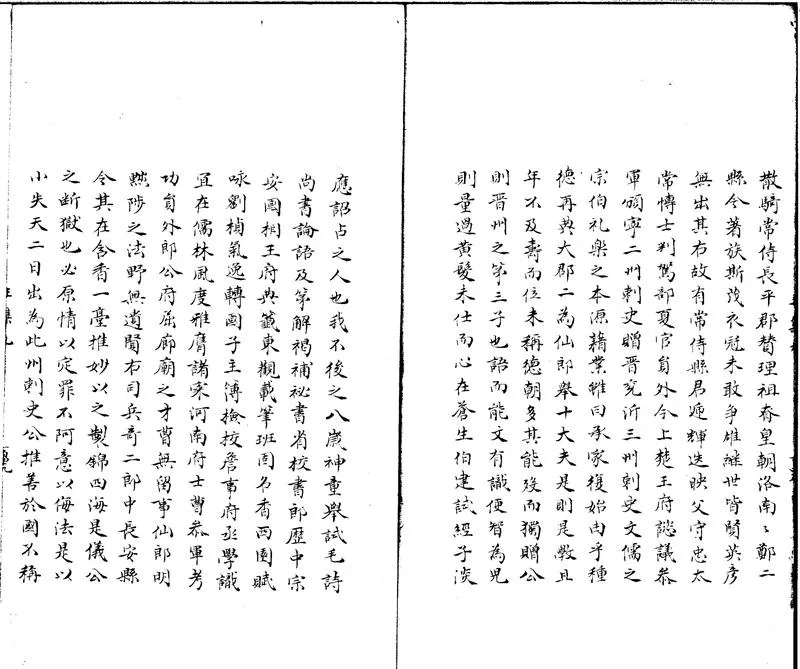 散騎常侍長平郡贊理祖眘皇朝洛南〻鄭二
縣令著族斯茂衣冠未敢爭雄継世皆賢英彦
無出其右故有常侍縣君逓輝迭映父守忠太
常博士判駕部夏官貟外今上楚王府諮議叅
軍頻寧二州刺史贈晉兖沂三州刺史文儒之
宗伯礼樂之本源藉業雖曰承家稷始由乎種
德再典大郡二為仙郎舉十大夫是則是斆且
年不及壽而位未稱德朝多其能歿而獨贈公
則晋州之第三子也語而能文有識便智為児
則量過黄髪未仕而心在蒼生伯建試經子淡
應詔占之人也我不後之八歲神童舉試毛詩
尚書論語及苐解褐補祕書省校書郎歷中宗
安國相王府典籖東觀載筆班固名香西園賦
咏劉楨氣逸轉國子主簿撿校詹事府丞學識
宜在儒林風度雅膺諸寀河南府士曹叅軍考
功貟外郎公府屈廊廟之才曹無留事仙郎明
黜陟之法野無遺賢右司兵部二郎中長安縣
令其在含香一臺推妙以之製錦四海是儀公
之斷獄也必原情以定罪不阿意以侮法是以
小失天二日出為此州刺史公推善於國不稱